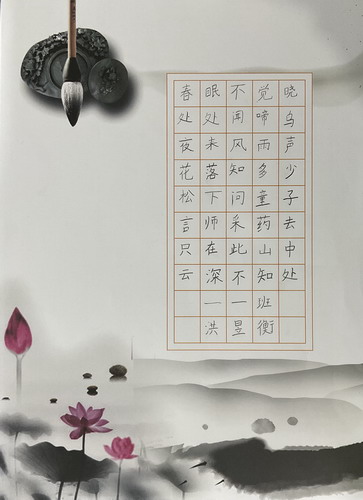 春眠不觉晓
处处闻啼鸟
夜来风雨声
花落知多少
松下问童子
言师采药去
只在此山中
云深不知处
一一班
洪昱衡